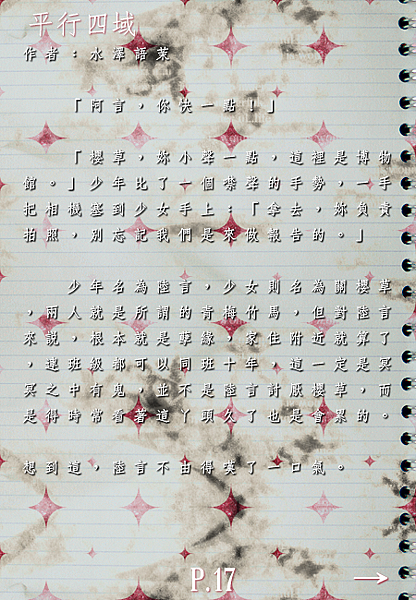 平行四域
作者：水澤語茉
「阿言，你快一點！」
「櫻草，妳小聲一點，這裡是博物
館。」少年比了一個噤聲的手勢，一手
把相機塞到少女手上：「拿去，妳負責
拍照，別忘記我們是來做報告的。」
少年名為陸言，少女則名為關櫻草
，兩人就是所謂的青梅竹馬，但對陸言
來說，根本就是孽緣，家住附近就算了
，連班級都可以同班十年，這一定是冥
冥之中有鬼，並不是陸言討厭櫻草，而
是得時常看著這丫頭久了也是會累的。
想到這，陸言不由得嘆了一口氣。
P.17